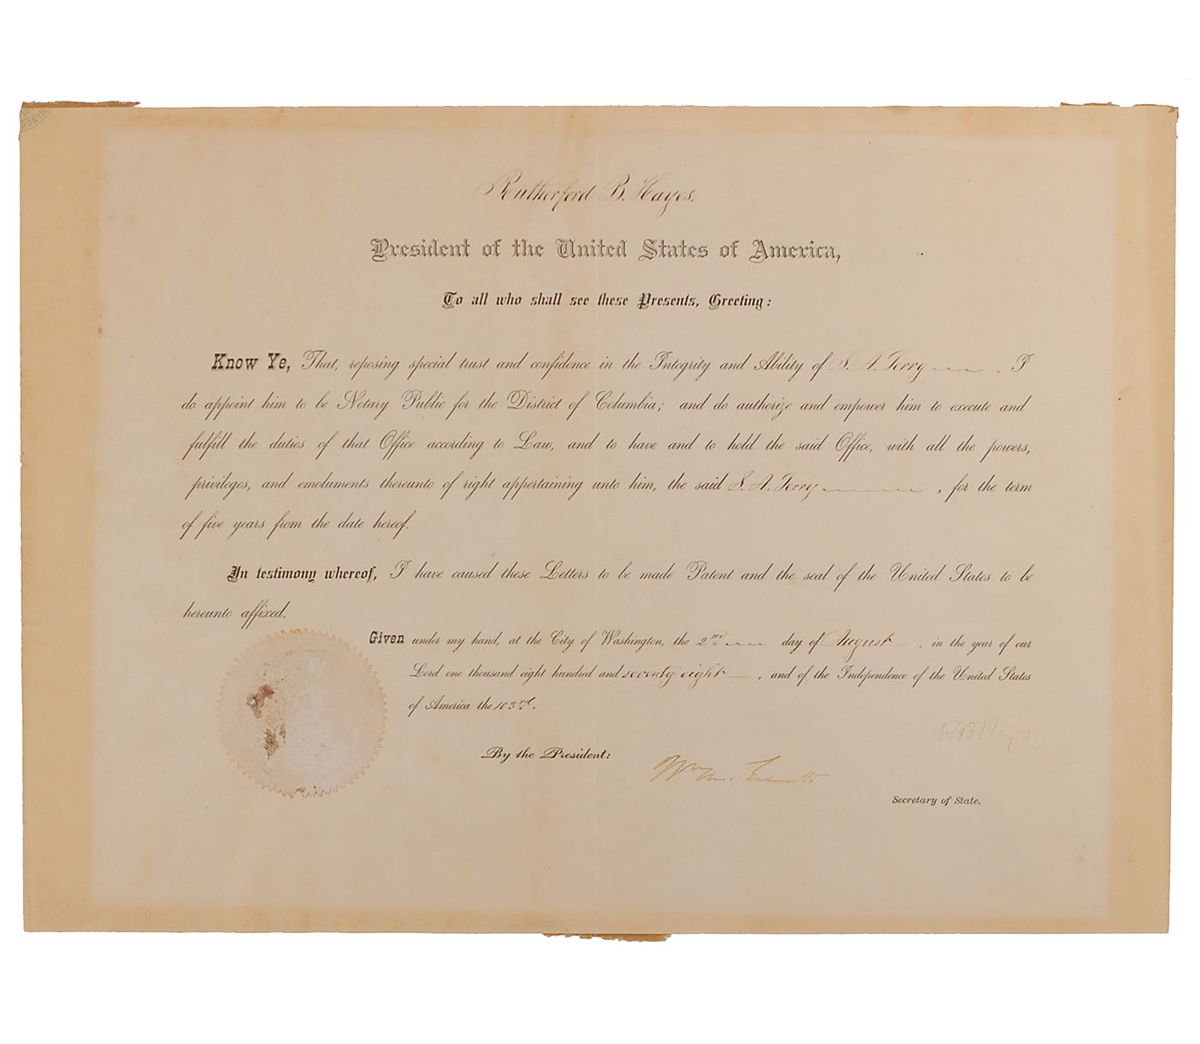 Rutherford B. Hayes.
President of the United States of America,
To all who shall see these Presents, Greeting:
Know Ye, That, reposing special trust and confidence in the Integrity and Ability of S. A. Terry . I
do appoint him to be Notary Public for the District of Columbia; and do authorize and empower him to execute and
fulfill the duties of that Office according to Law, and to have and to hold the said Office, with all the powers,
privileges, and emoluments thereunto of right appertaining unto him, the said S. A. Terry , for the term
of five years from the date hereof.
In testimony whereof, I have caused these Letters to be made Patent and the seal of the United States to be
hereunto affixed.
Given under my hand, at the City of Washington, the 2nd day of August , in the year of our
Lord one thousand eight hundred and seventy-eight , and of the Independence of the United States
of America the 103rd.
R B Hayes
By the President:
Wm. M. Evarts
Secretary of State.